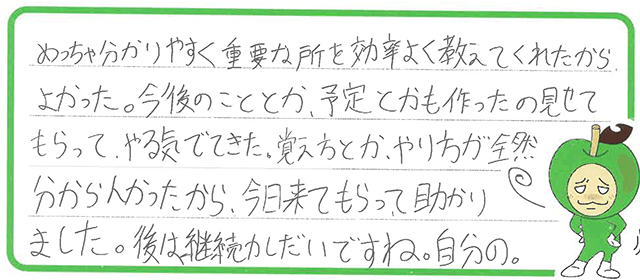 めっちゃ分かりやすく重要な所を効率よく教えてくれたから
よかった。今後のこととか、予定とかも作ったの見せて
もらって、やる気でてきた。覚え方とか、やり方が全然
分からんかったから、今日来てもらって助かり
ました。後は、継続力しだいですね。自分の。